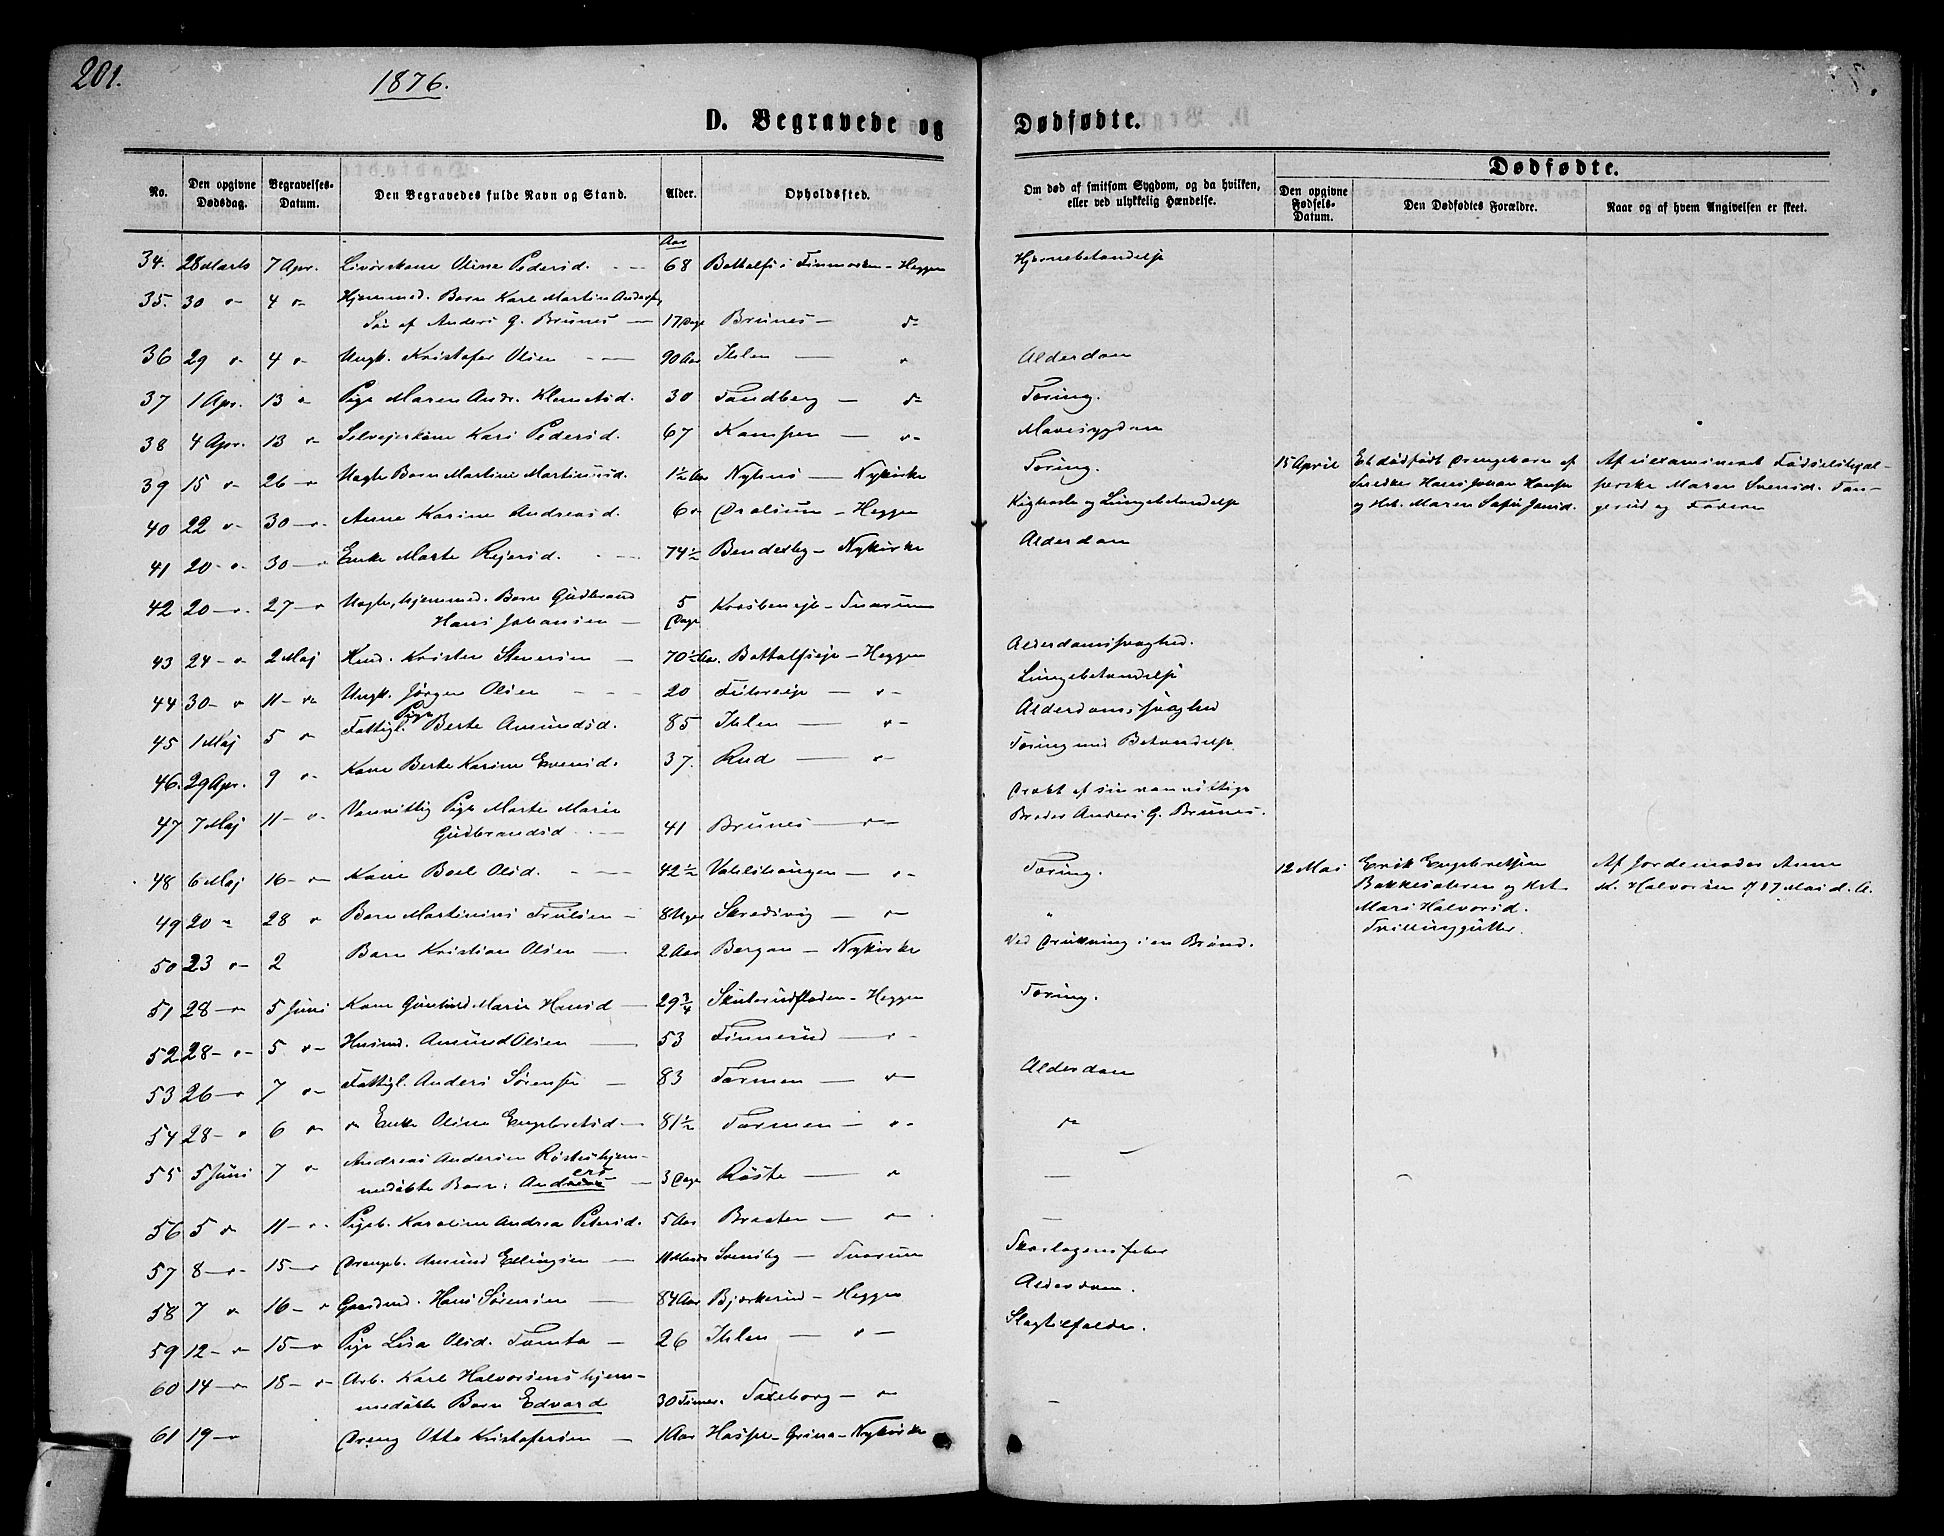 201.
1876.
D. Begravede og Dødfødte.
No. | Den opgivne Dødsdag. | Begravelses-Datum. | Den Begravedes fulde Navn og Stand. | Alder. | Opholdssted. | Om død af smitsom Sygdom, og da hvilken, eller ved ulykkelig Hændelse. | Dødfødte. | Den opgivne Fødsels-Datum. | Den Dødfødtes Forældre. | Naar og af hvem Angivelsen er skeet.
Aar
34. 28 Marts 7 Apr. Livørskone Oline Pedersd. 68 Bottolfs i Finmarken - Heggen Hjernebetændelse
35. 30 " 4 " Hjemmed. Barn Karl Martin Anders.
Søn af Anders G. Brunes 17 Dage Brunes - "
36 29 " 4 " Ungk. Kristofer Olsen 90 Aar Ihlen " Alderdom
37 1 Apr. 13 " Pige Maren Andr. Klemetsd. 30 Sandberg - " Tæring.
38 4 Apr. 13 " Selveierkone Kari Pedersd. 67 Kampen - " Mavesygdom
39 15 " 26 " Uægte Barn Martine Martinusd. 1½ Aar Nykirke Tæring. 15 April Et dødfødt Drengebarn af Af uexamineret Fødselshjæl-
40 22 " 30 " Anne Karine Andreasd. 6 " - Heggen Kighoste og Lungebetændelse Snedker Hans Johan Hanse perske Maren Svensd.
og Hst. Maren Sofie Jansd. og Faderen
41 20 " 30 " Enke Marte Reiersd. 74½ Bendixby - Nykirke Alderdom
42 20 " 27 " Uægte, hjemmed. Barn Gudbrand
Hans Johansen 5 Dage - Snarum
43 24 " 2 Maj Kristen Stenersen 70½ Aar. Bottolfseje - Heggen Alderdomssvaghed.
44 30 " 11 " Ungk. Jørgen Olsen 20 " Lungebetændelse
45 1 Maj 5 " Fattigl. Pige Berte Amundsd. 85 Ihlen " Alderdomssvaghed
46. 29 Apr. 9 " Kone Berte Karine Evensd. 37. Rud " Tæring med Betændelse
47 7 Maj 11 " Vanvittig Pige Marte Marie
Gudbrandsd 41 Brunes " Dræbt af sin vanvittige
Broder Anders G. Brunes.
48 6 Maj 16 " Kone Boel Olsd. 42½ " Tæring. 12 Mai Erik Engebretsen Af Jordemoder Anne
Bakkesæteren og Hst. M. Halvorsen d. 17 Mai d. A.
Mari Halvorsd.
Tvillinggutter.
49 20 " 28 " Barn Martinius Trulsen 8 Uger Skredsvig " "
50 23 " 2 Barn Kristian Olsen 2 Aar Bergan - Nykirke Ved Drukning i en Brønd.
51 28 " 5 Juni Kone Gunhild Marie Hansd 29¾ Skuterudfladen - Heggen Tæring.
52 28 " 5 " Husmd. Amund Olsen 53 Finnerud "
53 26 " 7 " Fattigl. Anders Sørensen 83 Tormen " Alderdom
54 28 " 6 " " Enke Oline Engebretsd 81½ Tormen " "
55 5 Juni 7 " Andreas Andersen Røstes hjem-
medøbte Barn: Anders 3 Dage Røste "
56 5 " 11 " Pigeb. Karoline Andrea Petersd. 5 Aar Braaten "
57 8 " 15 " Drengeb. Amund Ellingsen Svensby - Snarum Skarlagensfeber
58 7 " 16 " Gaardmd. Hans Sørensen 84 Aar Bjerkerud - Heggen Alderdom.
59 12 " 15 " Pige Lisa Olsd. Tomta 26 Ihlen " Slagtilfælde.
60 14 " 18 " Arb. Karl Halvorsens hjem-
medøbte Barn Edvard 30 Timer. "
61 19 " Dreng Otto Kristofersen 1 Aar - Nykirke